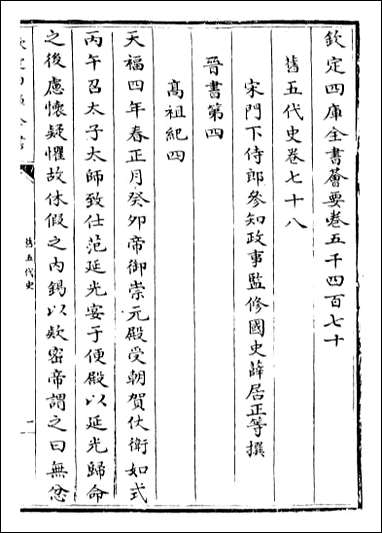 欽定四庫全書薈要卷五千四百七十
舊五代史卷七十八
宋門下侍郎參知政事監修國史薛居正等撰
晉書第四
高祖紀四
天福四年春正月癸卯帝御崇元殿受朝賀仗衛如式
丙午召太子太師致仕范延光宴于便殿以延光歸命
之後慮懷疑懼故休假之內錫以款密帝謂之曰無忿
舊五代史